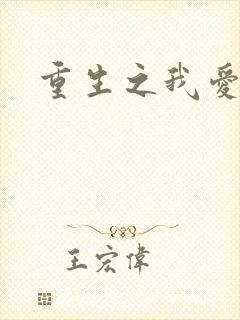 重生之我愛
王宏偉